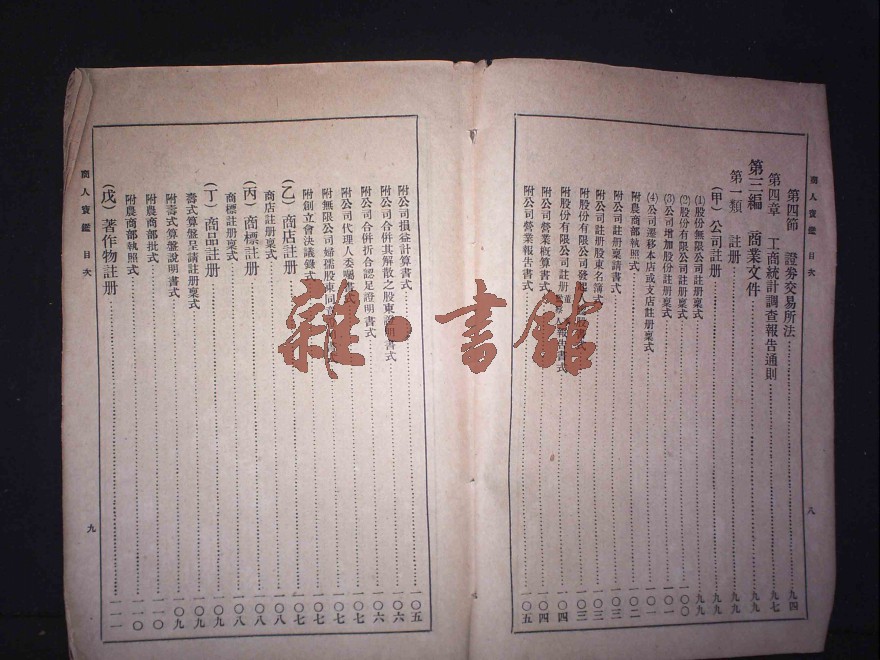 商人寶鑑 目次 八
第四節 證劵交易所法 九四
第四章 工商統計調查報告通則 九七
第三編 商業文件 九九
第一類 註册 九九
(甲)公司註册 九九
(1)股份無限公司註册稟式 九九
(2)股份有限公司註册稟式 一〇〇
(3)公司增加股份註册稟式 一〇一
(4)公司遷移本店或支店註册稟式 一〇一
附農商部執照式 一〇二
附公司註册稟請書式 一〇三
附公司註册股東名簿式 一〇三
附股份有限公司發起 一〇三
附股份有限公司註册 報告書式 一〇四
附公司營業概算書式 一〇四
附公司營業報告書式 一〇五
附公司損益計算書式 一〇五
附公司合併其解散之股東 書式 一〇六
附公司合併折合認足證明書式 一〇六
附公司代理人委囑書式 一〇七
附無限公司婦孺股東同意 一〇七
附創立會決議錄式 一〇七
(乙)商店註册 一〇七
商店註册稟式 一〇八
(丙)商標註册 一〇八
商標註册稟式 一〇八
(丁)商品註册 一〇九
壽式算盤呈請註册稟式 一〇九
附壽式算盤說明書式 一〇九
附農商部批式 一一〇
附農商部執照式 一一〇
(戊)著作物註册 一一一
商人寶鑑 目次 九
雜·書館